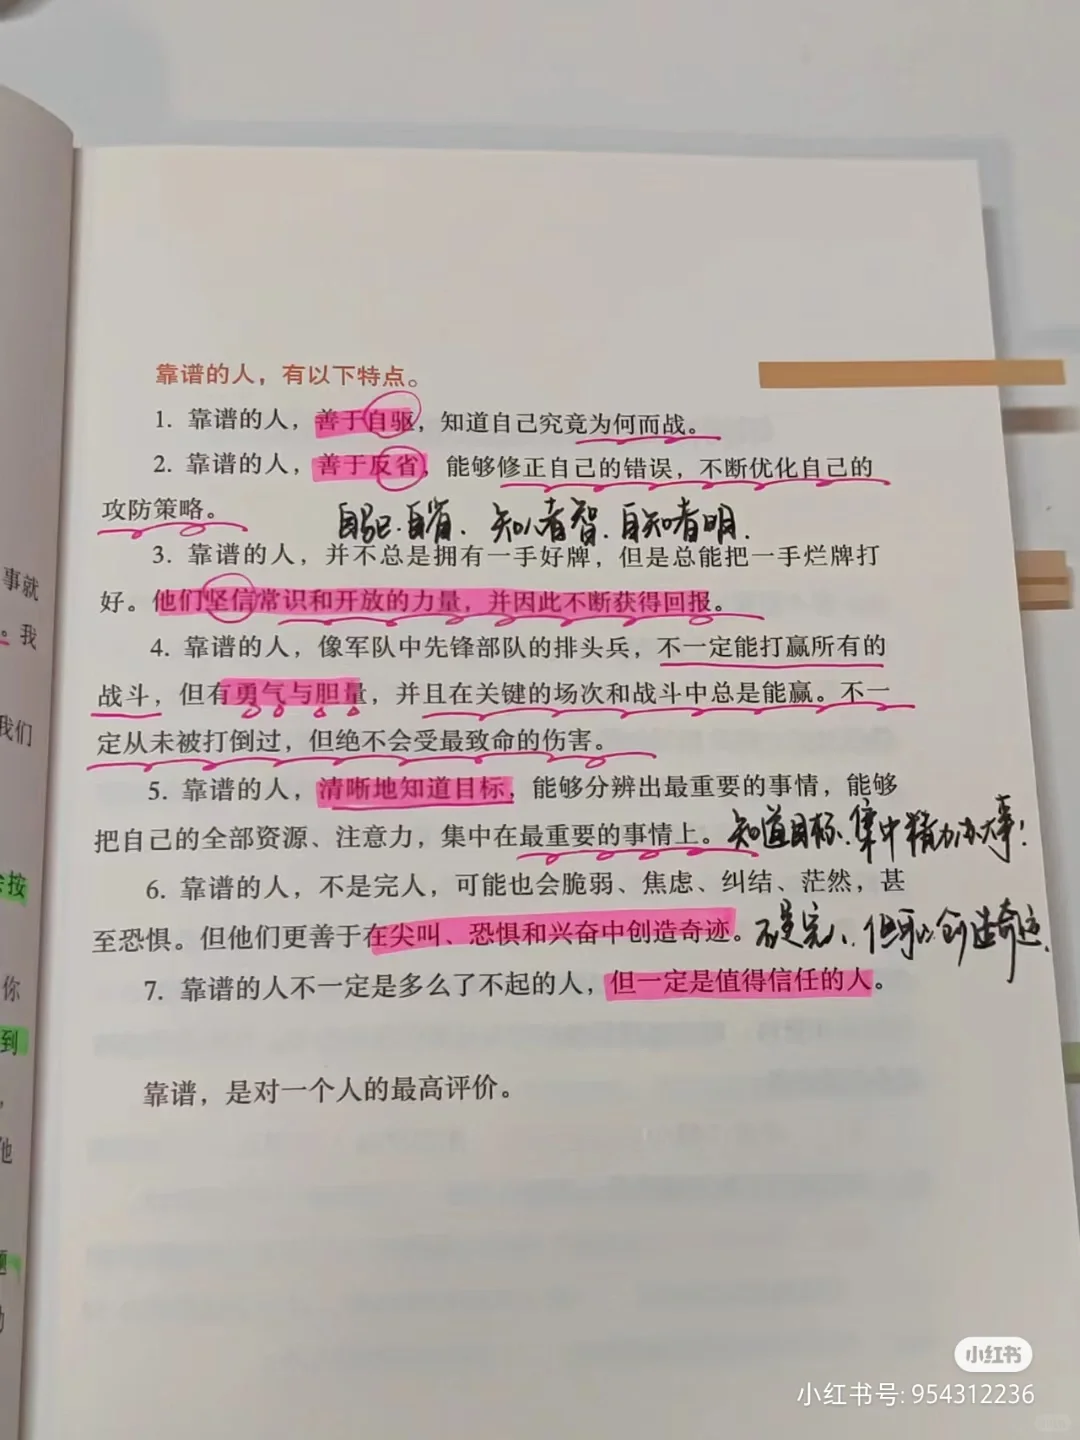 靠谱的人，有以下特点。
1. 靠谱的人，善于自驱，知道自己究竟为何而战。
2. 靠谱的人，善于反省，能够修正自己的错误，不断优化自己的
攻防策略。
自驱.自省. 知人者智.自知者明.
3. 靠谱的人，并不总是拥有一手好牌，但是总能把一手烂牌打
好。他们坚信常识和开放的力量，并因此不断获得回报。
4. 靠谱的人，像军队中先锋部队的排头兵，不一定能打赢所有的
战斗，但有勇气与胆量，并且在关键的场次和战斗中总是能赢。不一
定从未被打倒过，但绝不会受最致命的伤害。
5. 靠谱的人，清晰地知道目标，能够分辨出最重要的事情，能够
把自己的全部资源、注意力，集中在最重要的事情上。
知道目标.集中精力办大事!
6. 靠谱的人，不是完人，可能也会脆弱、焦虑、纠结、茫然，甚
至恐惧。但他们更善于在尖叫、恐惧和兴奋中创造奇迹。
不是完人、但可以创造奇迹.
7. 靠谱的人不一定是多么了不起的人，但一定是值得信任的人。
靠谱，是对一个人的最高评价。
事就
。我
我们
按
你
到
，
他
题
小红书
小红书号: 954312236